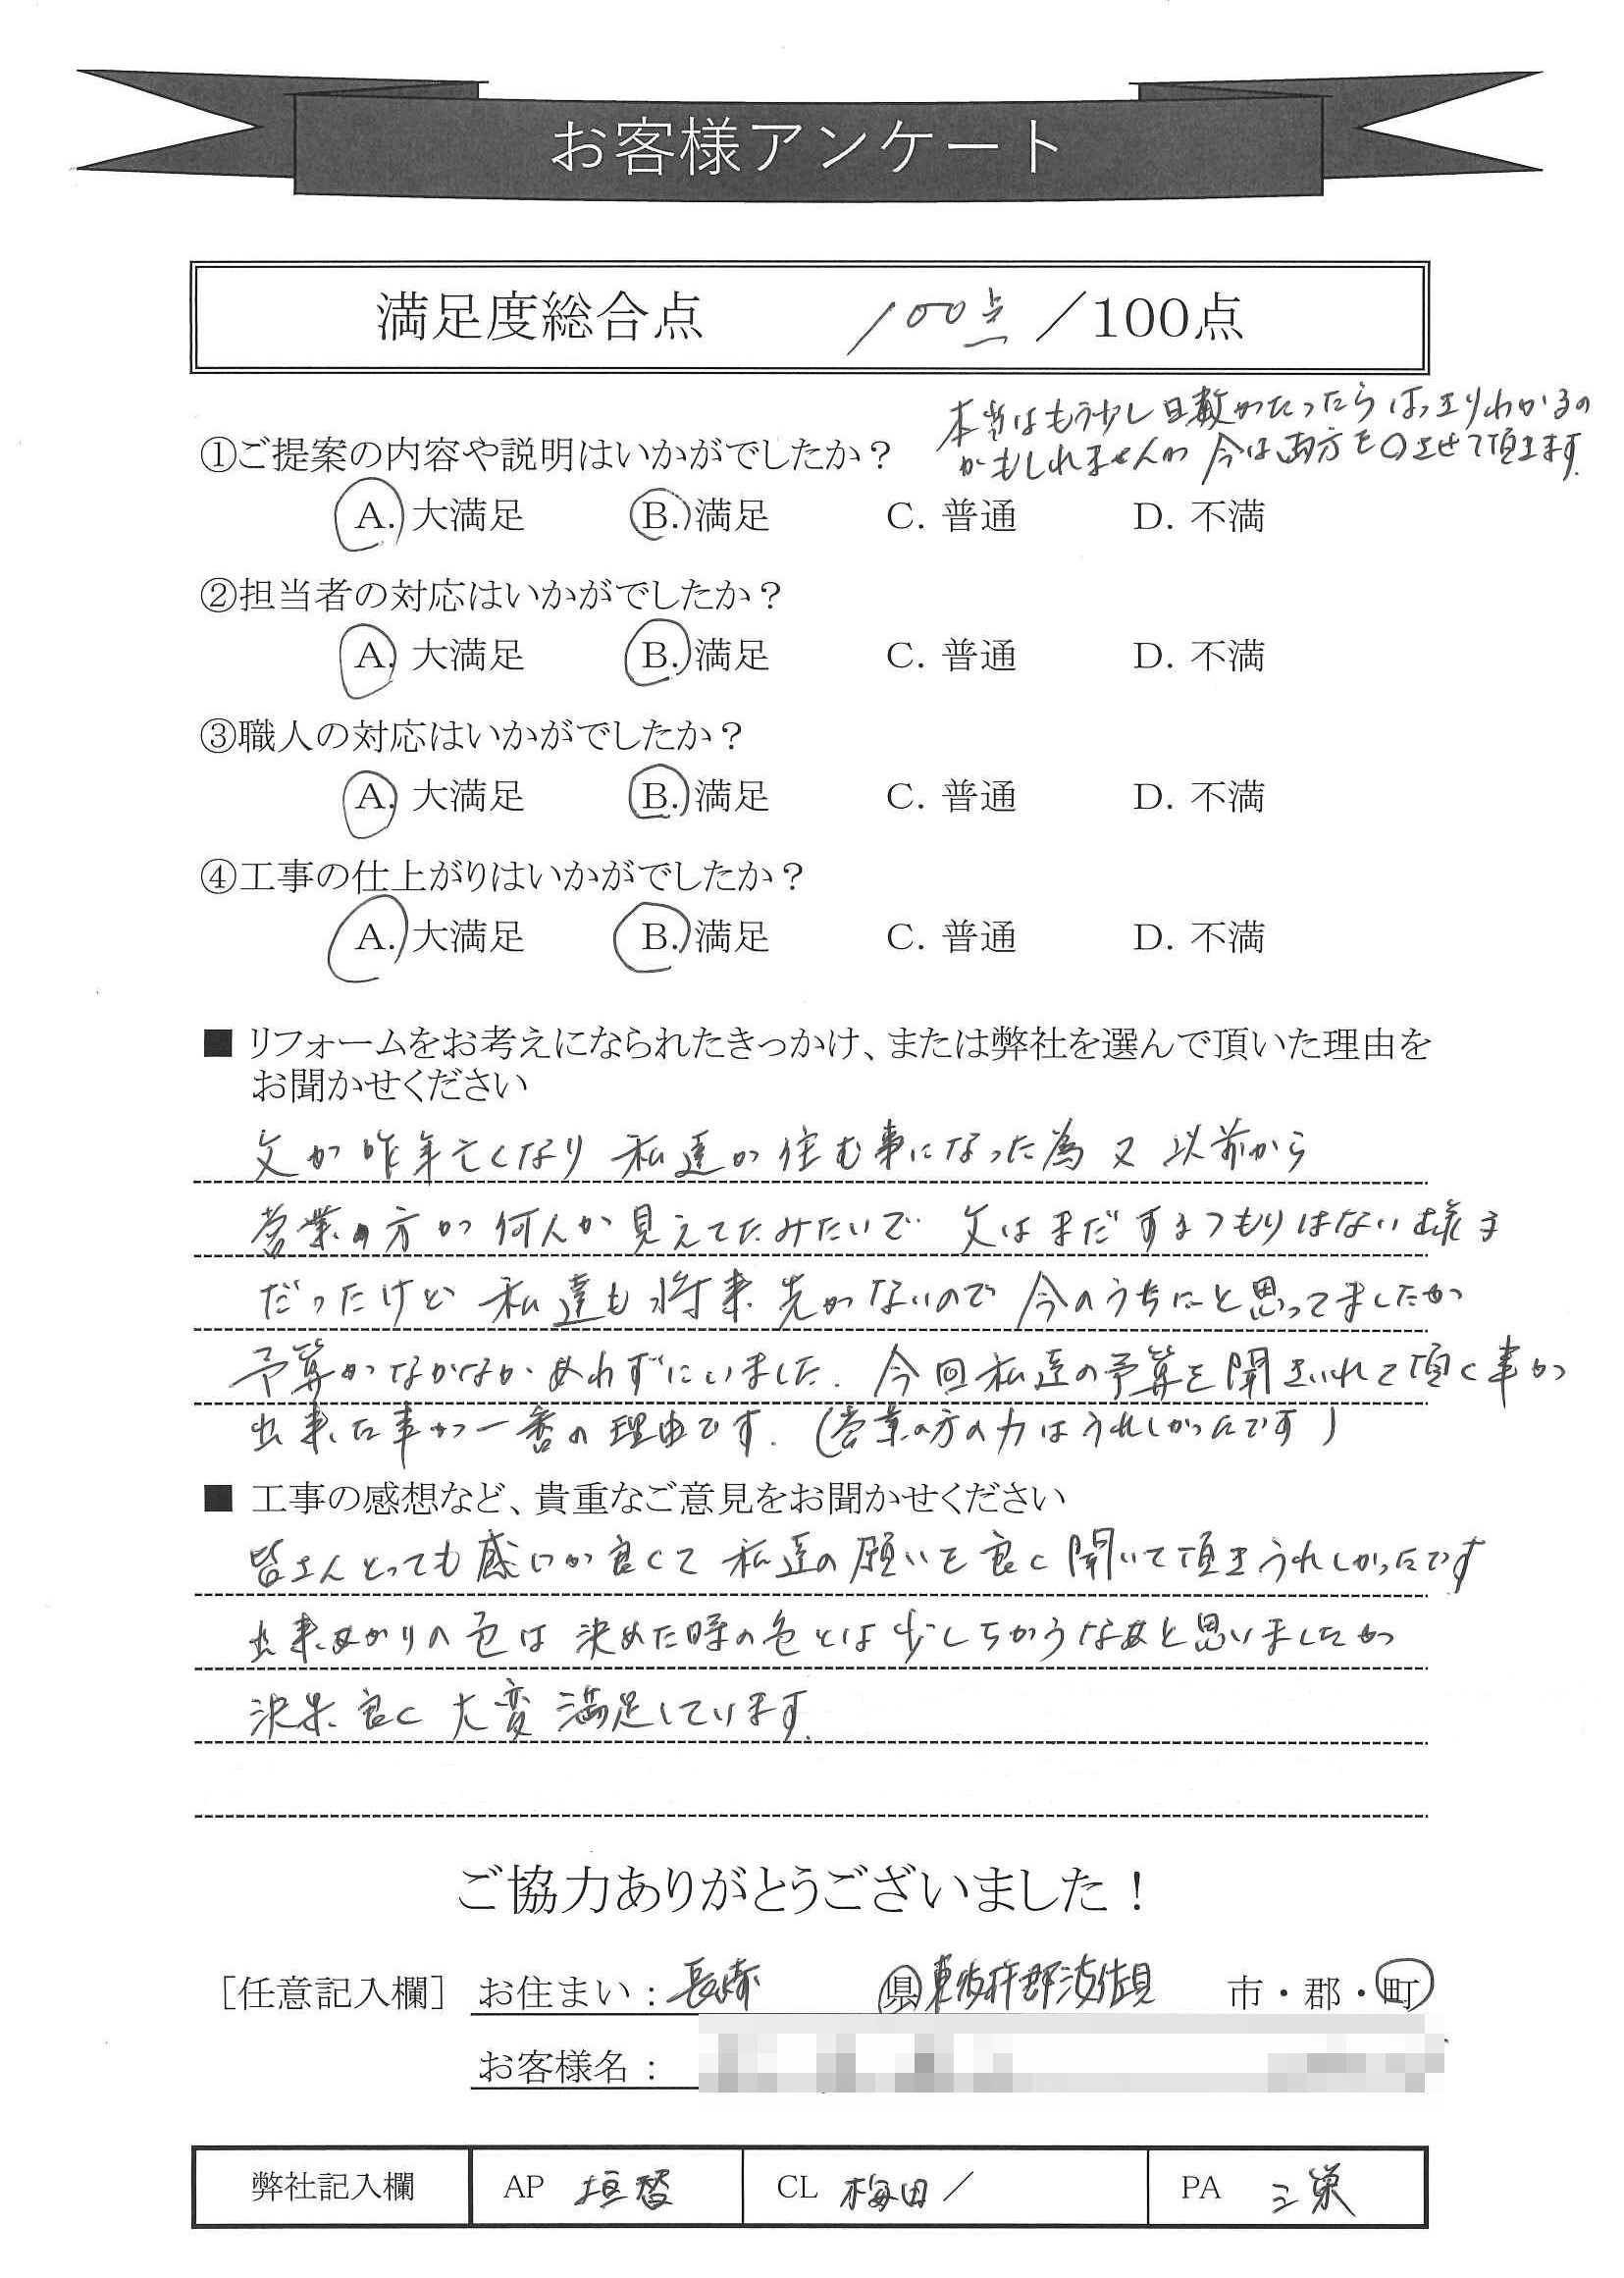 お客様アンケート
満足度総合点 100点 ／100点
本当はもう少し日数がたったらはっきりわかるの
かもしれませんが 今は両方を〇させて頂きます.
①ご提案の内容や説明はいかがでしたか？
A. 大満足 B. 満足 C. 普通 D. 不満
②担当者の対応はいかがでしたか？
A. 大満足 B. 満足 C. 普通 D. 不満
③職人の対応はいかがでしたか？
A. 大満足 B. 満足 C. 普通 D. 不満
④工事の仕上がりはいかがでしたか？
A. 大満足 B. 満足 C. 普通 D. 不満
■ リフォームをお考えになられたきっかけ、または弊社を選んで頂いた理由を
お聞かせください
父が昨年亡くなり 私達が住む事になった為 又 以前から
営業の方が何人か見えてたみたいで 父はまだするつもりはない様子
だったけど 私達も将来先がないので 今のうちにと思ってましたが
予算がなかなかあわずにいました. 今回私達の予算を聞きいれて頂く事が
出来た事が一番の理由です. (営業の方の力はうれしかったです)
■ 工事の感想など、貴重なご意見をお聞かせください
皆さんとっても感じが良くて 私達の願いを良く聞いて頂きうれしかったです
出来あがりの色は決めた時の色とは少しちがうなあと思いましたが
決果良く 大変満足しています.
ご協力ありがとうございました！
［任意記入欄］ お住まい：長崎 県 東彼杵郡波佐見 市・郡・町
お客様名：
弊社記入欄 AP 垣替 CL 梅田／ PA 三栄